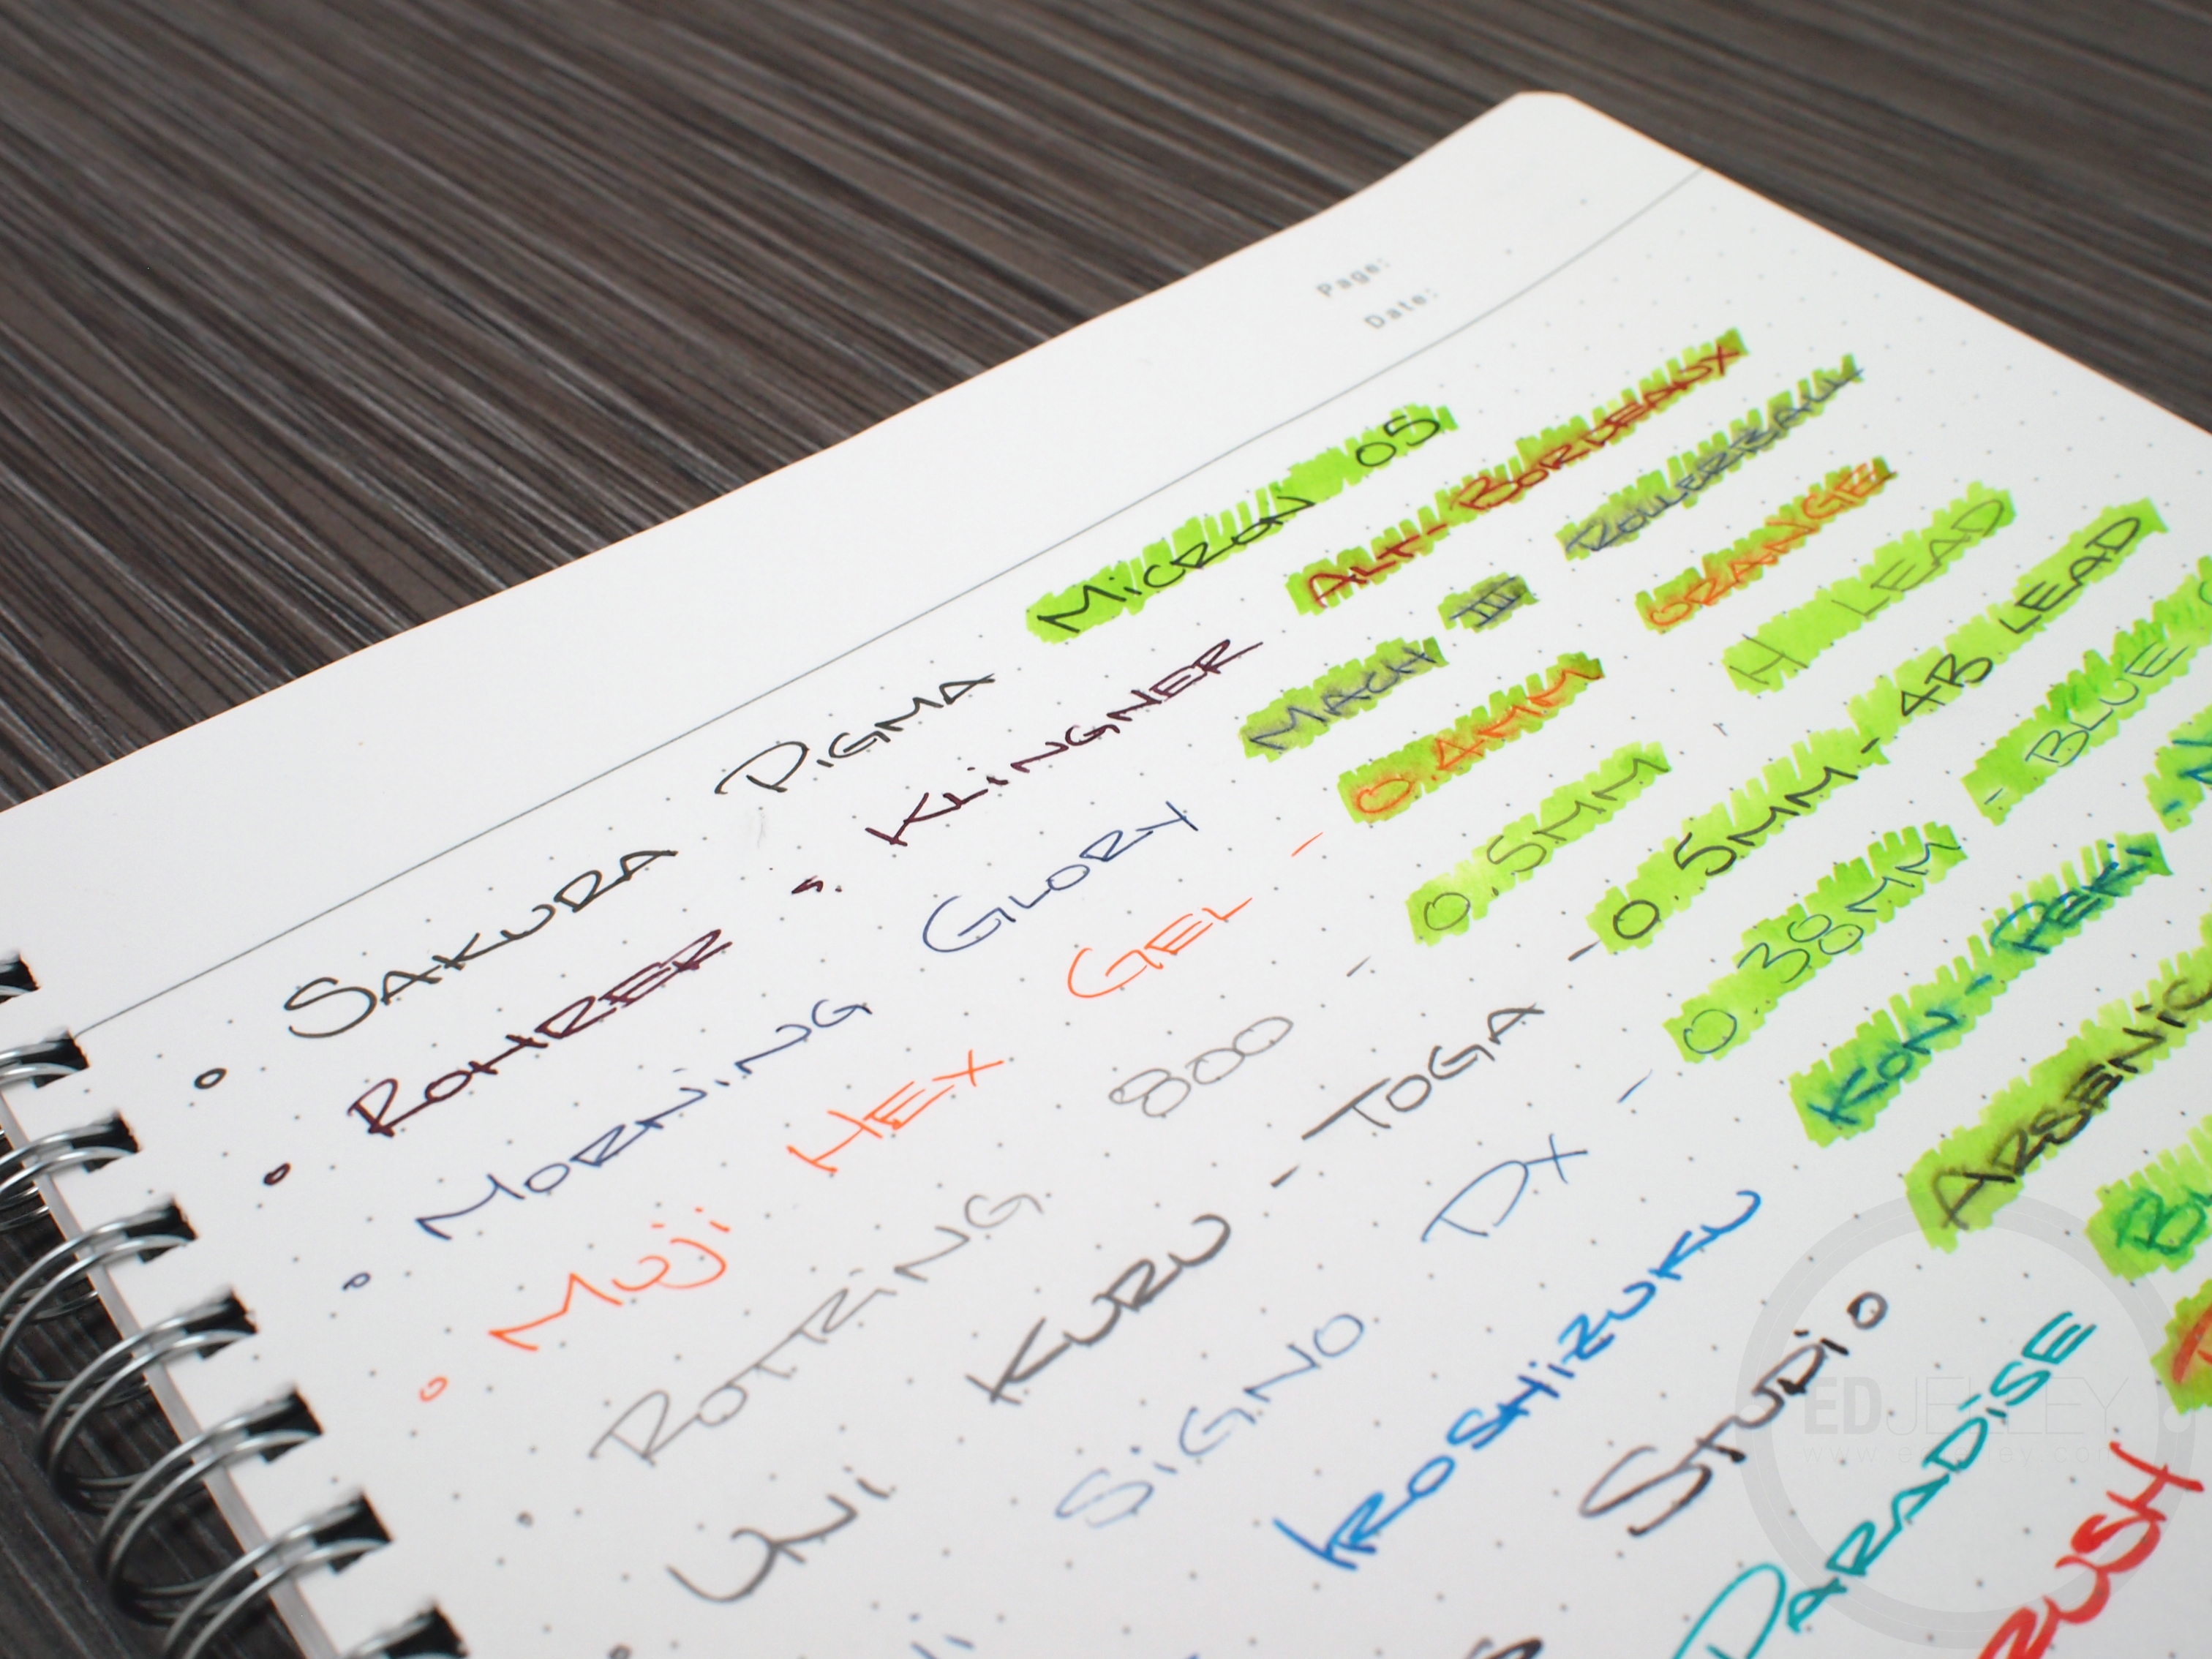 Page:
Date:
SAKURA PIGMA MICRON 05
ROHRER & KLINGNER ALT-BORDEAUX
MORNING GLORY MACH III ROLLERBALL
MUJI HEX GEL - 0.4MM ORANGE
ROTRING 800 - 0.5MM H LEAD
UNI KURU - TOGA - 0.5MM - 4B LEAD
SIGNO DX - 0.38MM - BLUE
IROSHIZUKU KON-PEKI
STUDIO ARSENIC
PARADISE
EDJELLEY